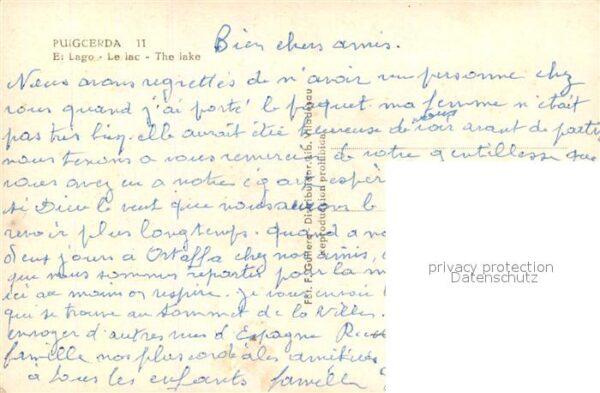 PUIGCERDA 11
El Lago - Le lac - The lake
Bien chers amis.
Nous avons regrettés de n'avoir vu personne chez
vous quand j'ai porté le paquet ma femme n'était
pas très bien elle aurait été heureuse de vous voir avant de partir
nous tenons a vous remercier de votre gentillesse que
vous avez eu a notre égard
si Dieu le veut que nous aurons le
revoir plus longtemps. quand a no
deux jours à Ortaffa chez nos amis,
que nous sommes repartis pour la m
ici au moins on respire. je vous envoi
qui se trouve au sommet de la ville.
envoyer d'autres vues d'Espagne
famille nos plus cordiales amitiés
à tous les enfants famille
Fot. F. Guillera. Distribuidor: Lib.
Reproduction prohibida
privacy protection
Datenschutz